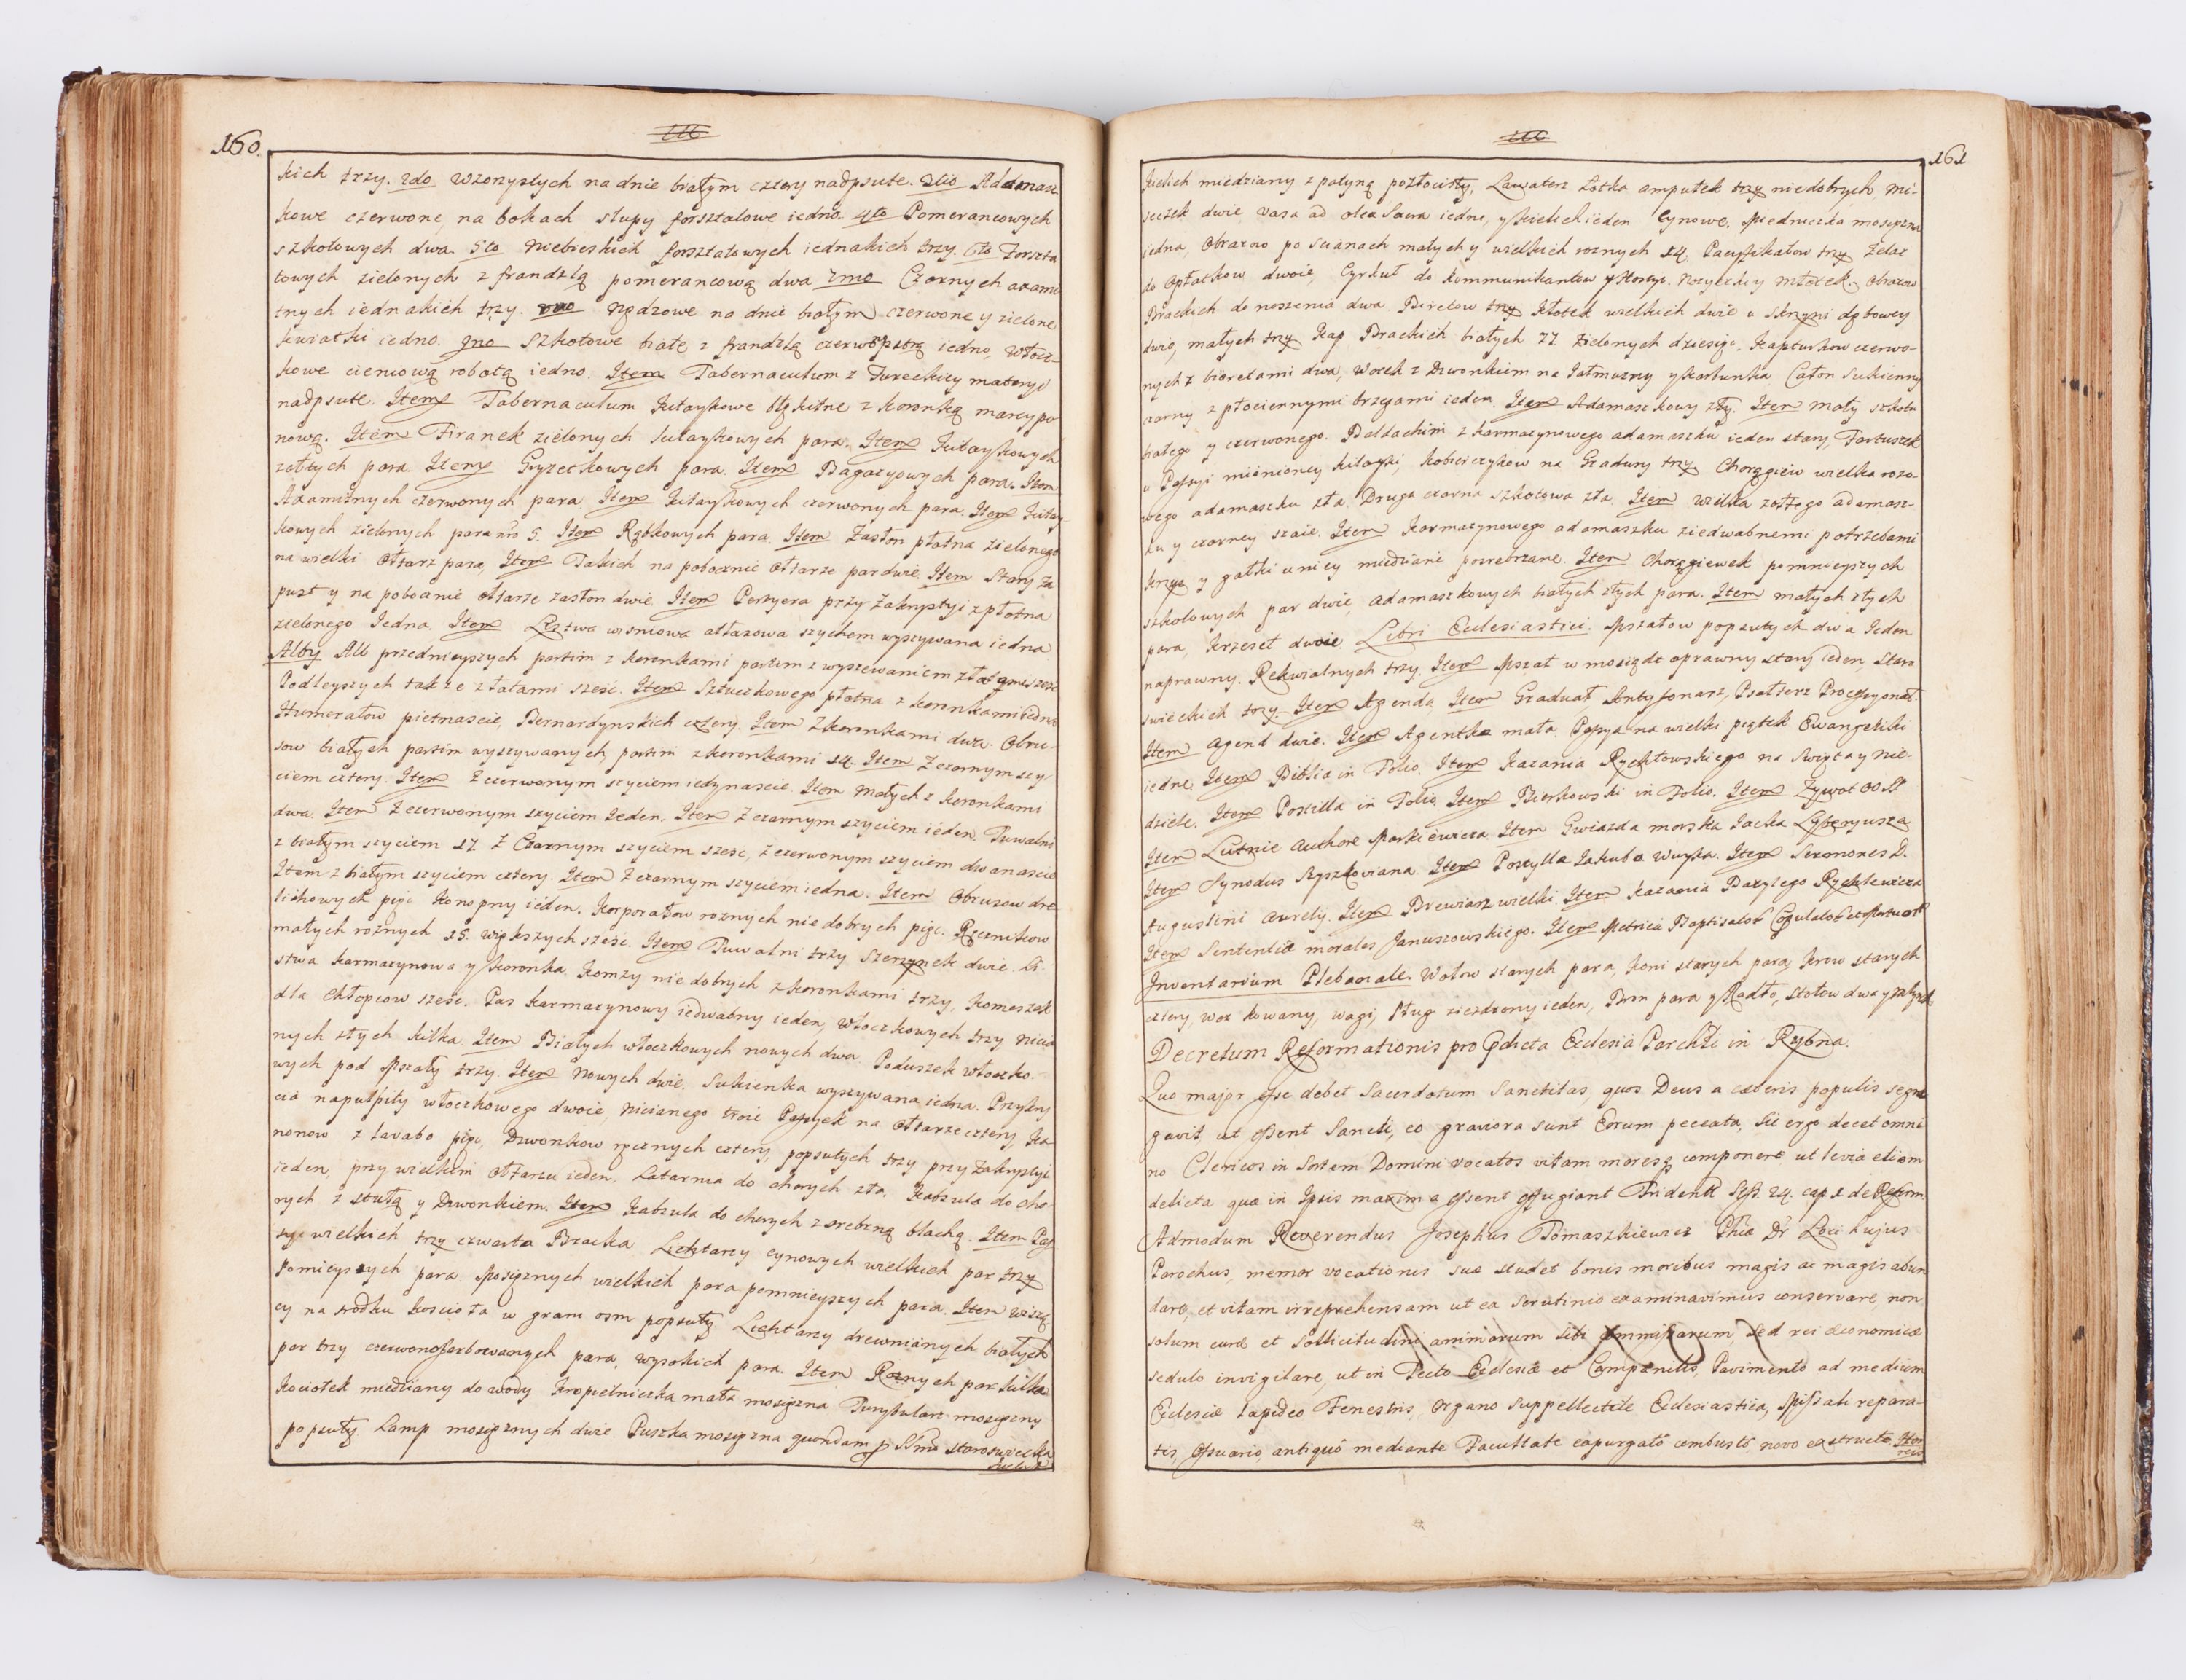 160.
kich trzy. 2do Wzorzystych na dnie białym cztery nadpsute. 3tio Addmasz
kowe czerwone, na bokach słupy forsztatowe iedno. 4to Pomerancowych
szkotowych dwa. 5to Niebieskich forsztatowych iednakich trzy. 6to Forszta
towych zielonych z frandzlą pomerancową dwa 7mo Czornych axami
tnych iednakich trzy. Nędzowe na dnie białym czerwone y zielone
kwiatki iedno. 9no Szkotowe białe z frandzlą iedno, Włocz-
kowe cieniową robotą iedno. Item Tabernaculum z Tureckiey materyi
nadpsute. Item Tabernaculum Kitaykowe błękitne z koronką marcypo
nową. Item Firanek zielonych kitaykowych para. Item Kitaykowych
żółtych para. Item Gryzetkowych para. Item Bagazyowych para. Item
Axamitnych czerwonych para. Item Kitaykowych czerwonych para. Item Kitay
kowych zielonych para nro 5. Item Rąbkowych para. Item Zasłon płotna zielonego
na wielki Ołtarz para, Item Takich na pobocznie Ołtarze par dwie. Item Stary za
pust y na pobocznie ołtarze zasłon dwie. Item Portyera przy Zakrystyi z płotna
zielonego Iedna. Item Listwa wiśniowa atłasowa szychem wyszywana iedna
Alby Alb przednieyszych partim z koronkami partim z wyszewaniem
Podleyszych także z łatami sześć. Item Sztuczkowego płotna z koronkami iedna
Humerałow piętnaście, Bernardynskich cztery. Item Z koronkami dwa. Obru-
sow białych partim wyszywanych, partim z koronkami 14. Item Z czarnym szy-
ciem cztery. Item Z czerwonym szyciem iedynaście. Item Małych z koronkami
dwa. Item Z czerwonym szyciem Ieden, Item Z czarnym szyciem ieden. Tuwalni
z białym szyciem 17. Z Czarnym szyciem sześć, z czerwonym szyciem dwanaście
Item z białym szyciem cztery. Item Z czarnym szyciem iedna. Item Obrusow dre
lichowych pięć Konopny ieden. Korporałow roznych nie dobrych pięć. Ręcznikow
małych roznych 15. większych sześć. Item Tuwalni trzy dwie. Li-
stwa karmazynowa y koronka. Komzy nie dobrych z koronkami trzy, Komeszek
dla Chłopcow sześć. Pas karmazynowy iedwabny ieden, Włoczkowych trzy nicia
nych złych kilka. Item Białych włoczkowych nowych dwa. Poduszek włoczko-
wych pod Mszały trzy. Item Nowych dwie. Sukienka wyszywana iedna. Przykry
cia na pulpity włoczkowego dwoie, nicianego troie Passyjek na Ołtarze cztery, Ka
nonow z lavabo pięć, Dzwonkow ręcznych cztery, popsutych trzy przy Zakrystyi
ieden, przy wielkim Ołtarzu ieden. Latarnia do chorych zła. Kabzula do cho-
rych z stułą y Dzwonkiem. Item Kabzula do chorych z srebrną blachą. Item Pas
syi wielkich trzy czwarta Bracka. Lichtarzy cynowych wielkich par trzy
Pomieyszych para. Mosiężnych wielkich para pomnieyszych para. Item Wiszą-
cy na srodku kościoła w gram osm popsuty. Lichtarzy drewnianych białych
par trzy czerwono farbowanych para, wysokich para. Item Roznych par kilka
Kociołek miedziany do wody. Kropielniczka mała mosiężna. Turybularz mosiężny
popsuty Lamp mosiężnych dwie Puszka mosiężna quondam staroswiecka
161
Kielich miedziany z patyną pozłocisty, Lawaterz Łotka ampułek trzy niedobrych Mi-
seczek dwie Vasa ad olea Sacra iedne, y kielich ieden Cynowe. Miedniczka mosiężna
iedna, Obrazow po Scianach małych y wielkich roznych 14. Pacyfikałow trzy Żelaz
do Opłatkow dwoie, Cyrkuł do kommunikantow y Hostyi. Nożyczki y Młotek. Obrazow
Brackich do noszenia dwa. Biretow trzy Kłotek wielkich dwie u Skrzyni dębowey
dwie, małych trzy Kap Brackich białych 27. Zielonych dziesięć. Kapturkow czerwo-
nych z biretami dwa, Worek z Dzwonkiem na Jałmużny y skarbonka, Całon Sukienny
czarny z płociennymi brzegami ieden. Item Adamaszkowy zły. Item Mały szkotu
białego y czerwonego. Baldachim z karmazynowego adamaszku ieden stary, Fartuszek
u Passyi mienioney kitayki, Kobierczykow na Gradusy trzy Chorągiew wielka rozo-
wego adamaszku zła. Druga czarna szkotowa zła. Item Wielka żołtego adamasz-
ku y czarney szaie. Item Karmazynowego adamaszku z iedwabnemi potrzebami
krzyż y gałki u niey miedziane posrebrzane. Item Chorągiewek pomnieyszych
szkotowych par dwie, adamaszkowych białych złych para. Item małych złych
para, Krzeseł dwoie. Libri Ecclesiastici. Mszałow popsutych dwa Ieden
naprawny. Rekwialnych trzy. Item Mszał w mosiądz oprawny stary ieden, Staro
swieckich trzy. Item Agenda, Item Graduał, Antyfonarz, Psałterz Processyonał.
Item Agend dwie. Item Agentka mała. Passya na wielki piątek Ewangeliki
iedne. Item Biblia in Folio. Item Kazania Rychłowskiego na Swięta y Nie-
dziele. Item Postilla in Folio, Item Bierkowski in Folio. Item Zywot OO SS
Item Lutnie Authore Markiewicza. Item Gwiazda morska Jacka Lyberyusza
Item Synodus Szyszkoviana. Item Postylla Jakuba Wuyka. Item Sermones D.
Augustini Aurelij. Item Brewiarz wielki. Item Kazania Bazylego Rychlewicza
Item Sententiæ morales Januszowskiego. Item Metrica Baptisatoŕ Copulatoŕ et Mortuorū
Inventarium Plebanale. Wołow starych para, Koni starych para, Krow starych
cztery, Woz kowany, wagi, Pług zieżdżony ieden, Bron para y Radło, Stołow dwa y
Decretum Reformationis pro Pdicta Ecclesia Parchli in Rybna.
Quo major esse debet Sacerdotum Sanctitas, quos Deus a cæteris populis segre
gavit, ut essent Sancti, eo graviora sunt Eorum peccata, Sic ergo decet omni
no Clericos in Sortem Domini vocatos vitam moresq componere ut levia etiam
delicta quæ in Ipsis maxima essent effugiant Trident Sess. 24. cap 1 de Reform.
Admodum Reverendus Josephus Tomaszkiewicz Phiæ Dr Loci hujus
Parochus, memor vocationis suæ studet bonis moribus magis ac magis abun
dare, et vitam irreprehensam ut ea Scrutinio examinavimus conservare non
solum curæ et sollicitudini animarum sibi commissarum, sed rei œconomicæ
sedulo invigilare, ut in Tecto Ecclesiæ et Campanilis, Pavimento ad medium
Ecclesiæ lapideo Fenestris, Organo Suppellectile Ecclesiastica, Missali repara-
tis, Ossuario, antiquó mediante Facultate expurgató combustó novo exstructo, Hor
reis